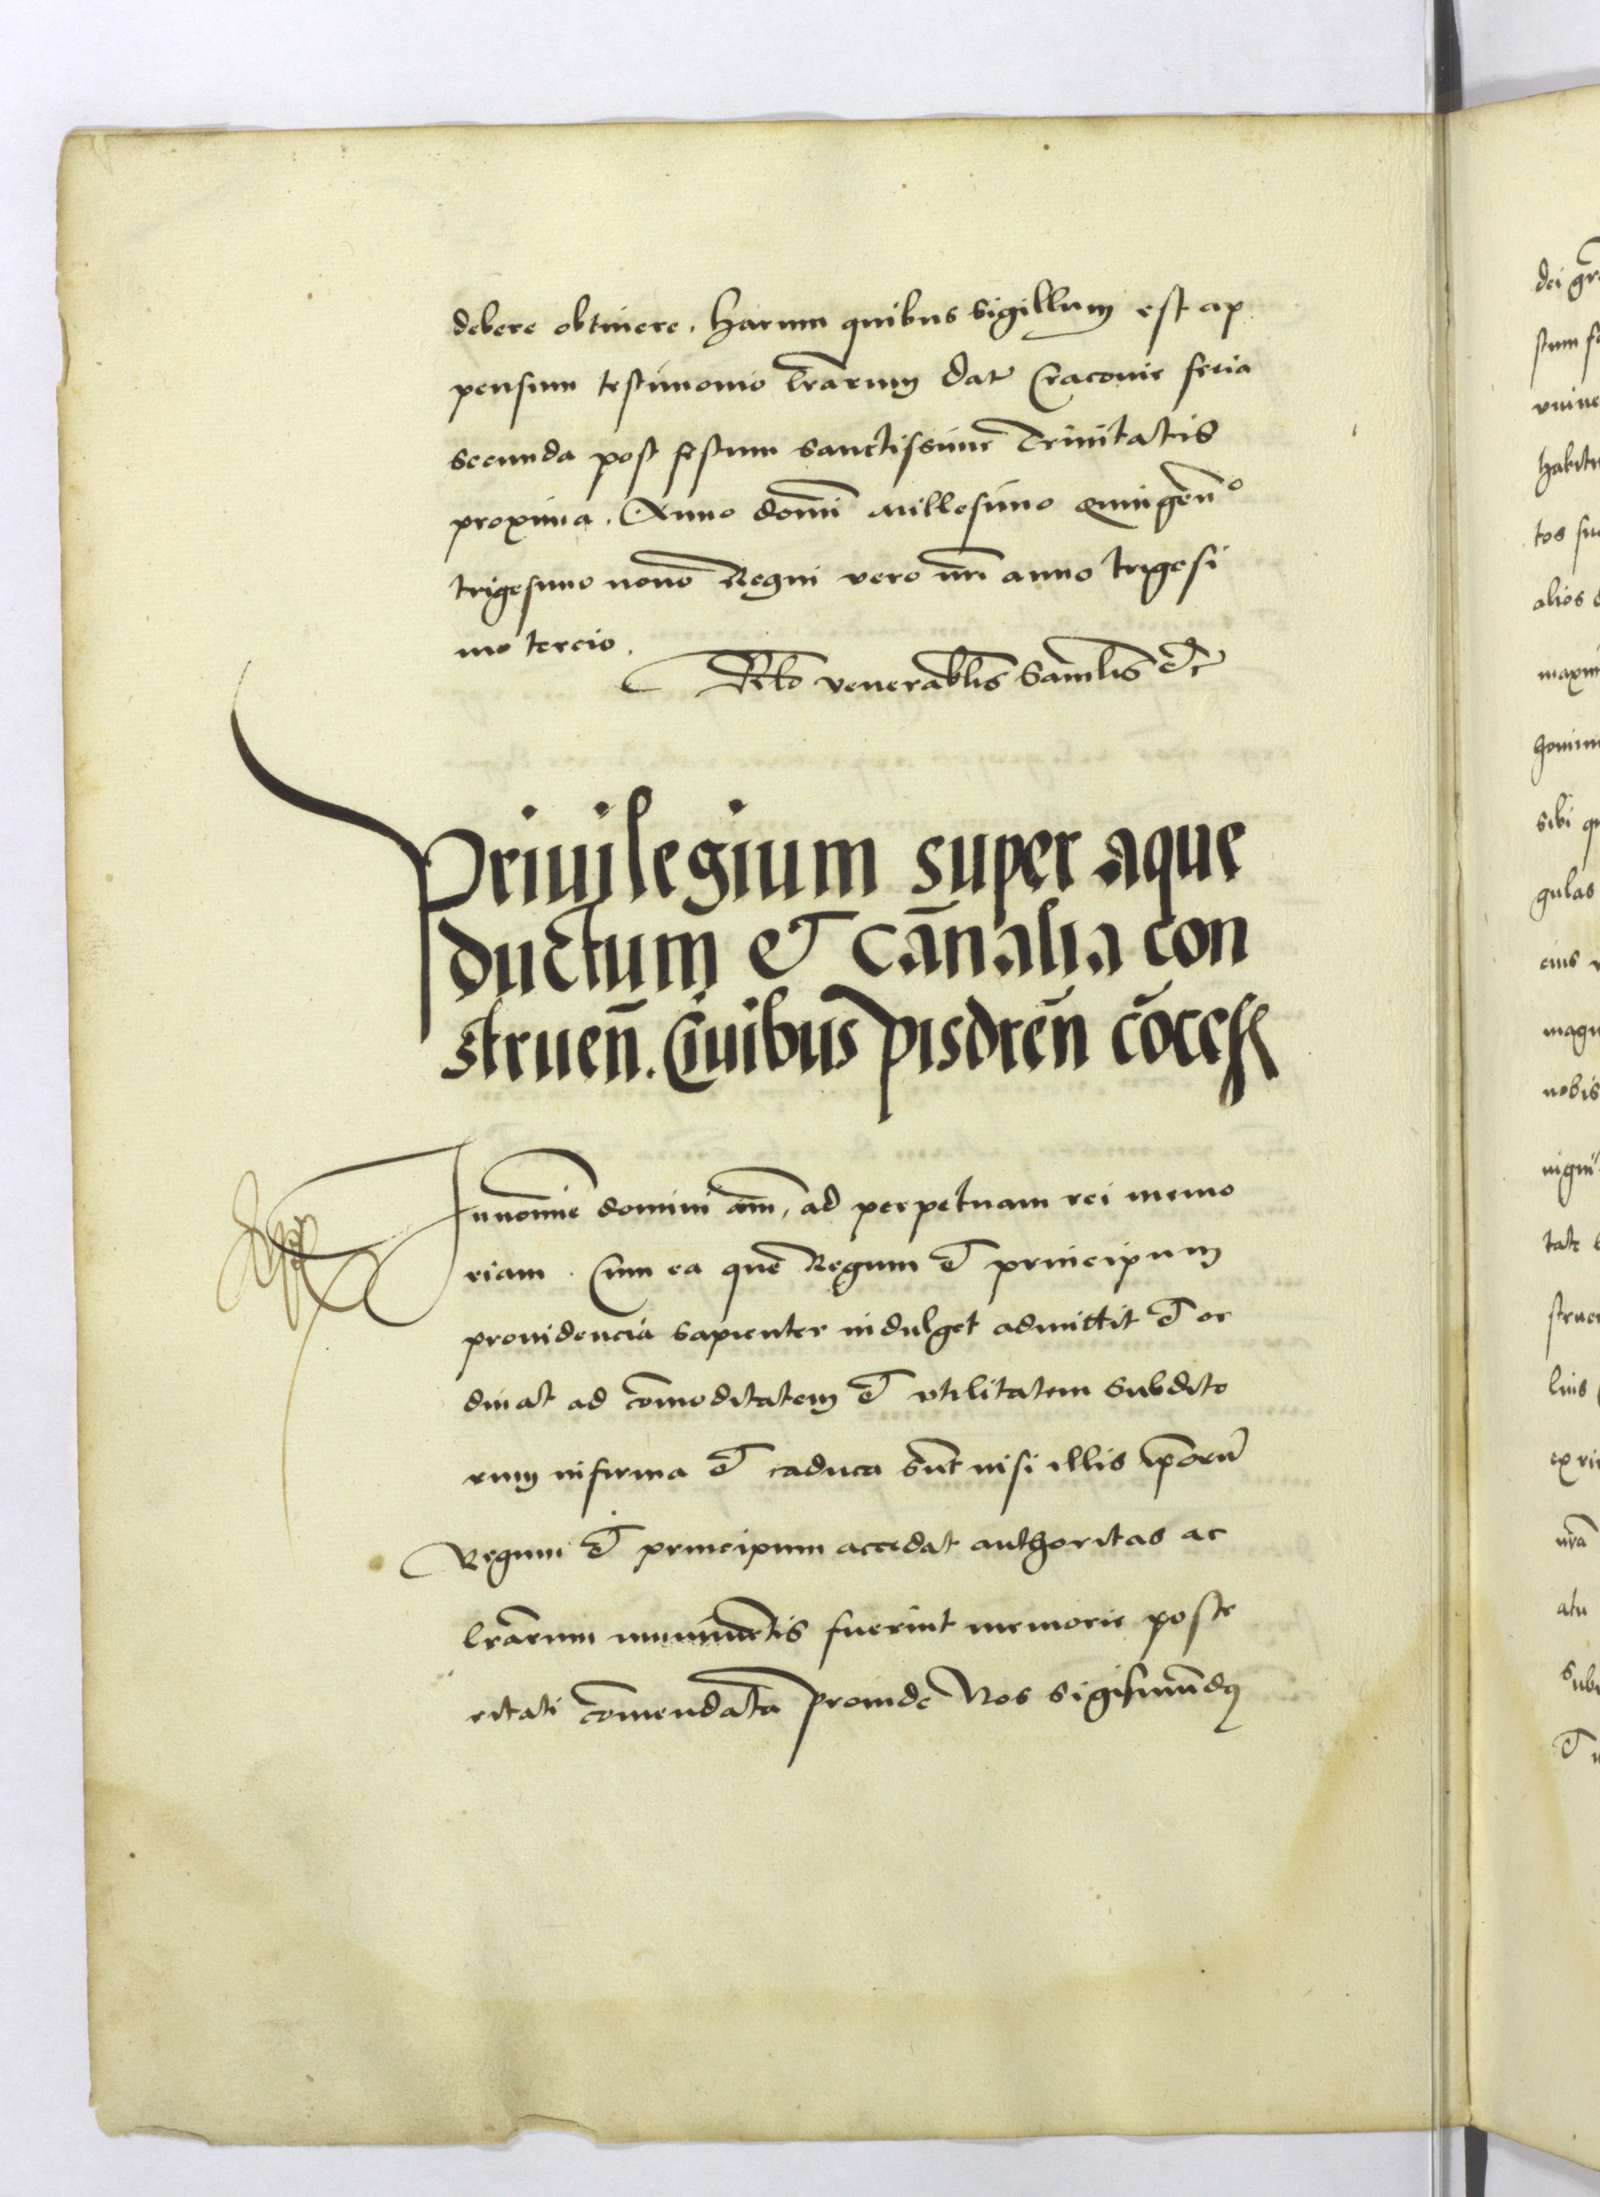 debere obtinere. Harum quibus Sigillum est ap
pensum testimonio l̄rarum Dat̄ Cracovie feria
secunda post festum sanctissime Trinitatis
proxima. Anno domī Millesimo Quingen̄o
trigesimo nono Regni vero n̄ri anno trigesi
mo tercio.
Rl̄o venerabl̄is Saml̄is etc̄
Privilegium super aque
ductum et cānalia con
struen̄. Civibus pisdren̄ cōcess
In nomīe domini am̄, ad perpetuam rei memo
riam. Cum ea que Regum et principum
providencia sapienter indulget admittit et or
dinat ad com̄oditatem et utilitatem subdito
rum infirma et caduca sun̄t nisi illis ip̄orū
Regum et principum accedat authoritas ac
l̄rarum munimētis fuerint memorie poste
ritati com̄endata proinde Nos Sigismūdꝰ
dei gr̄a
stum
habit
tos
alios
maxim
homin
sibi
gulas
eius
magn
nobis
tate
strue
n̄ra
subd
et